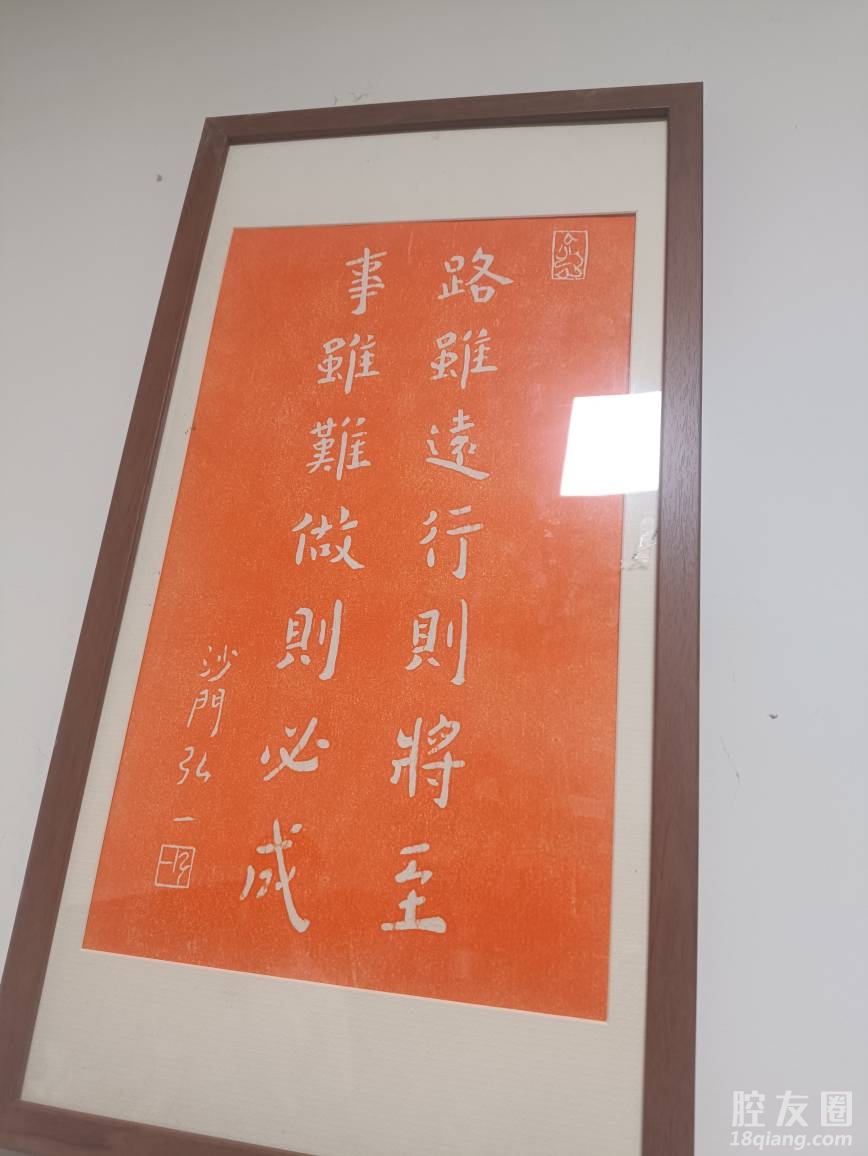 路雖遠行則將至
事雖難做則必成
沙門弘一
腔友圈
18qiang.com